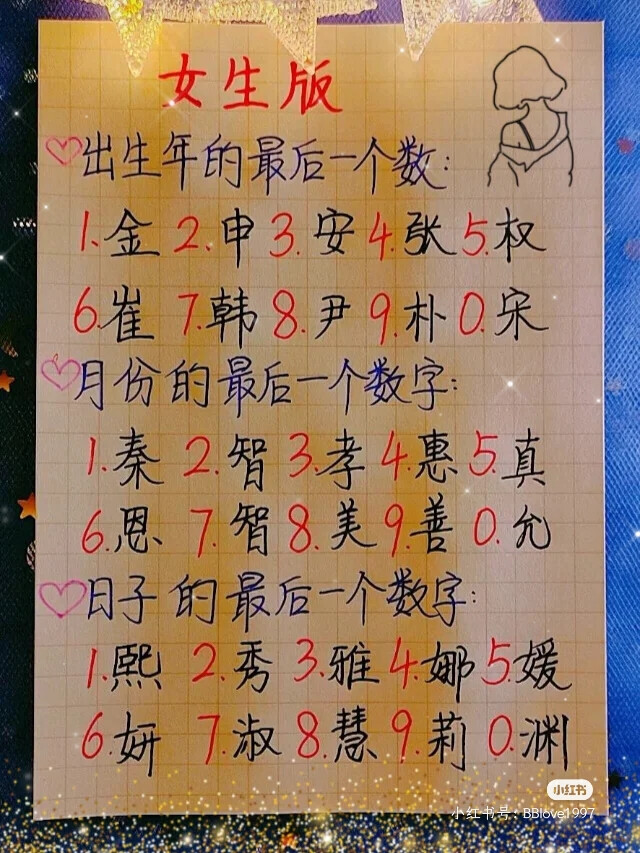 女生版
出生年的最后一个数:
1.金 2.申 3.安 4.张 5.权
6.崔 7.韩 8.尹 9.朴 0.宋
月份的最后一个数字:
1.秦 2.智 3.孝 4.惠 5.真
6.恩 7.智 8.美 9.善 0.允
日子的最后一个数字:
1.熙 2.秀 3.雅 4.娜 5.媛
6.妍 7.淑 8.慧 9.莉 0.渊
小红书
小红书号:BBlove1997